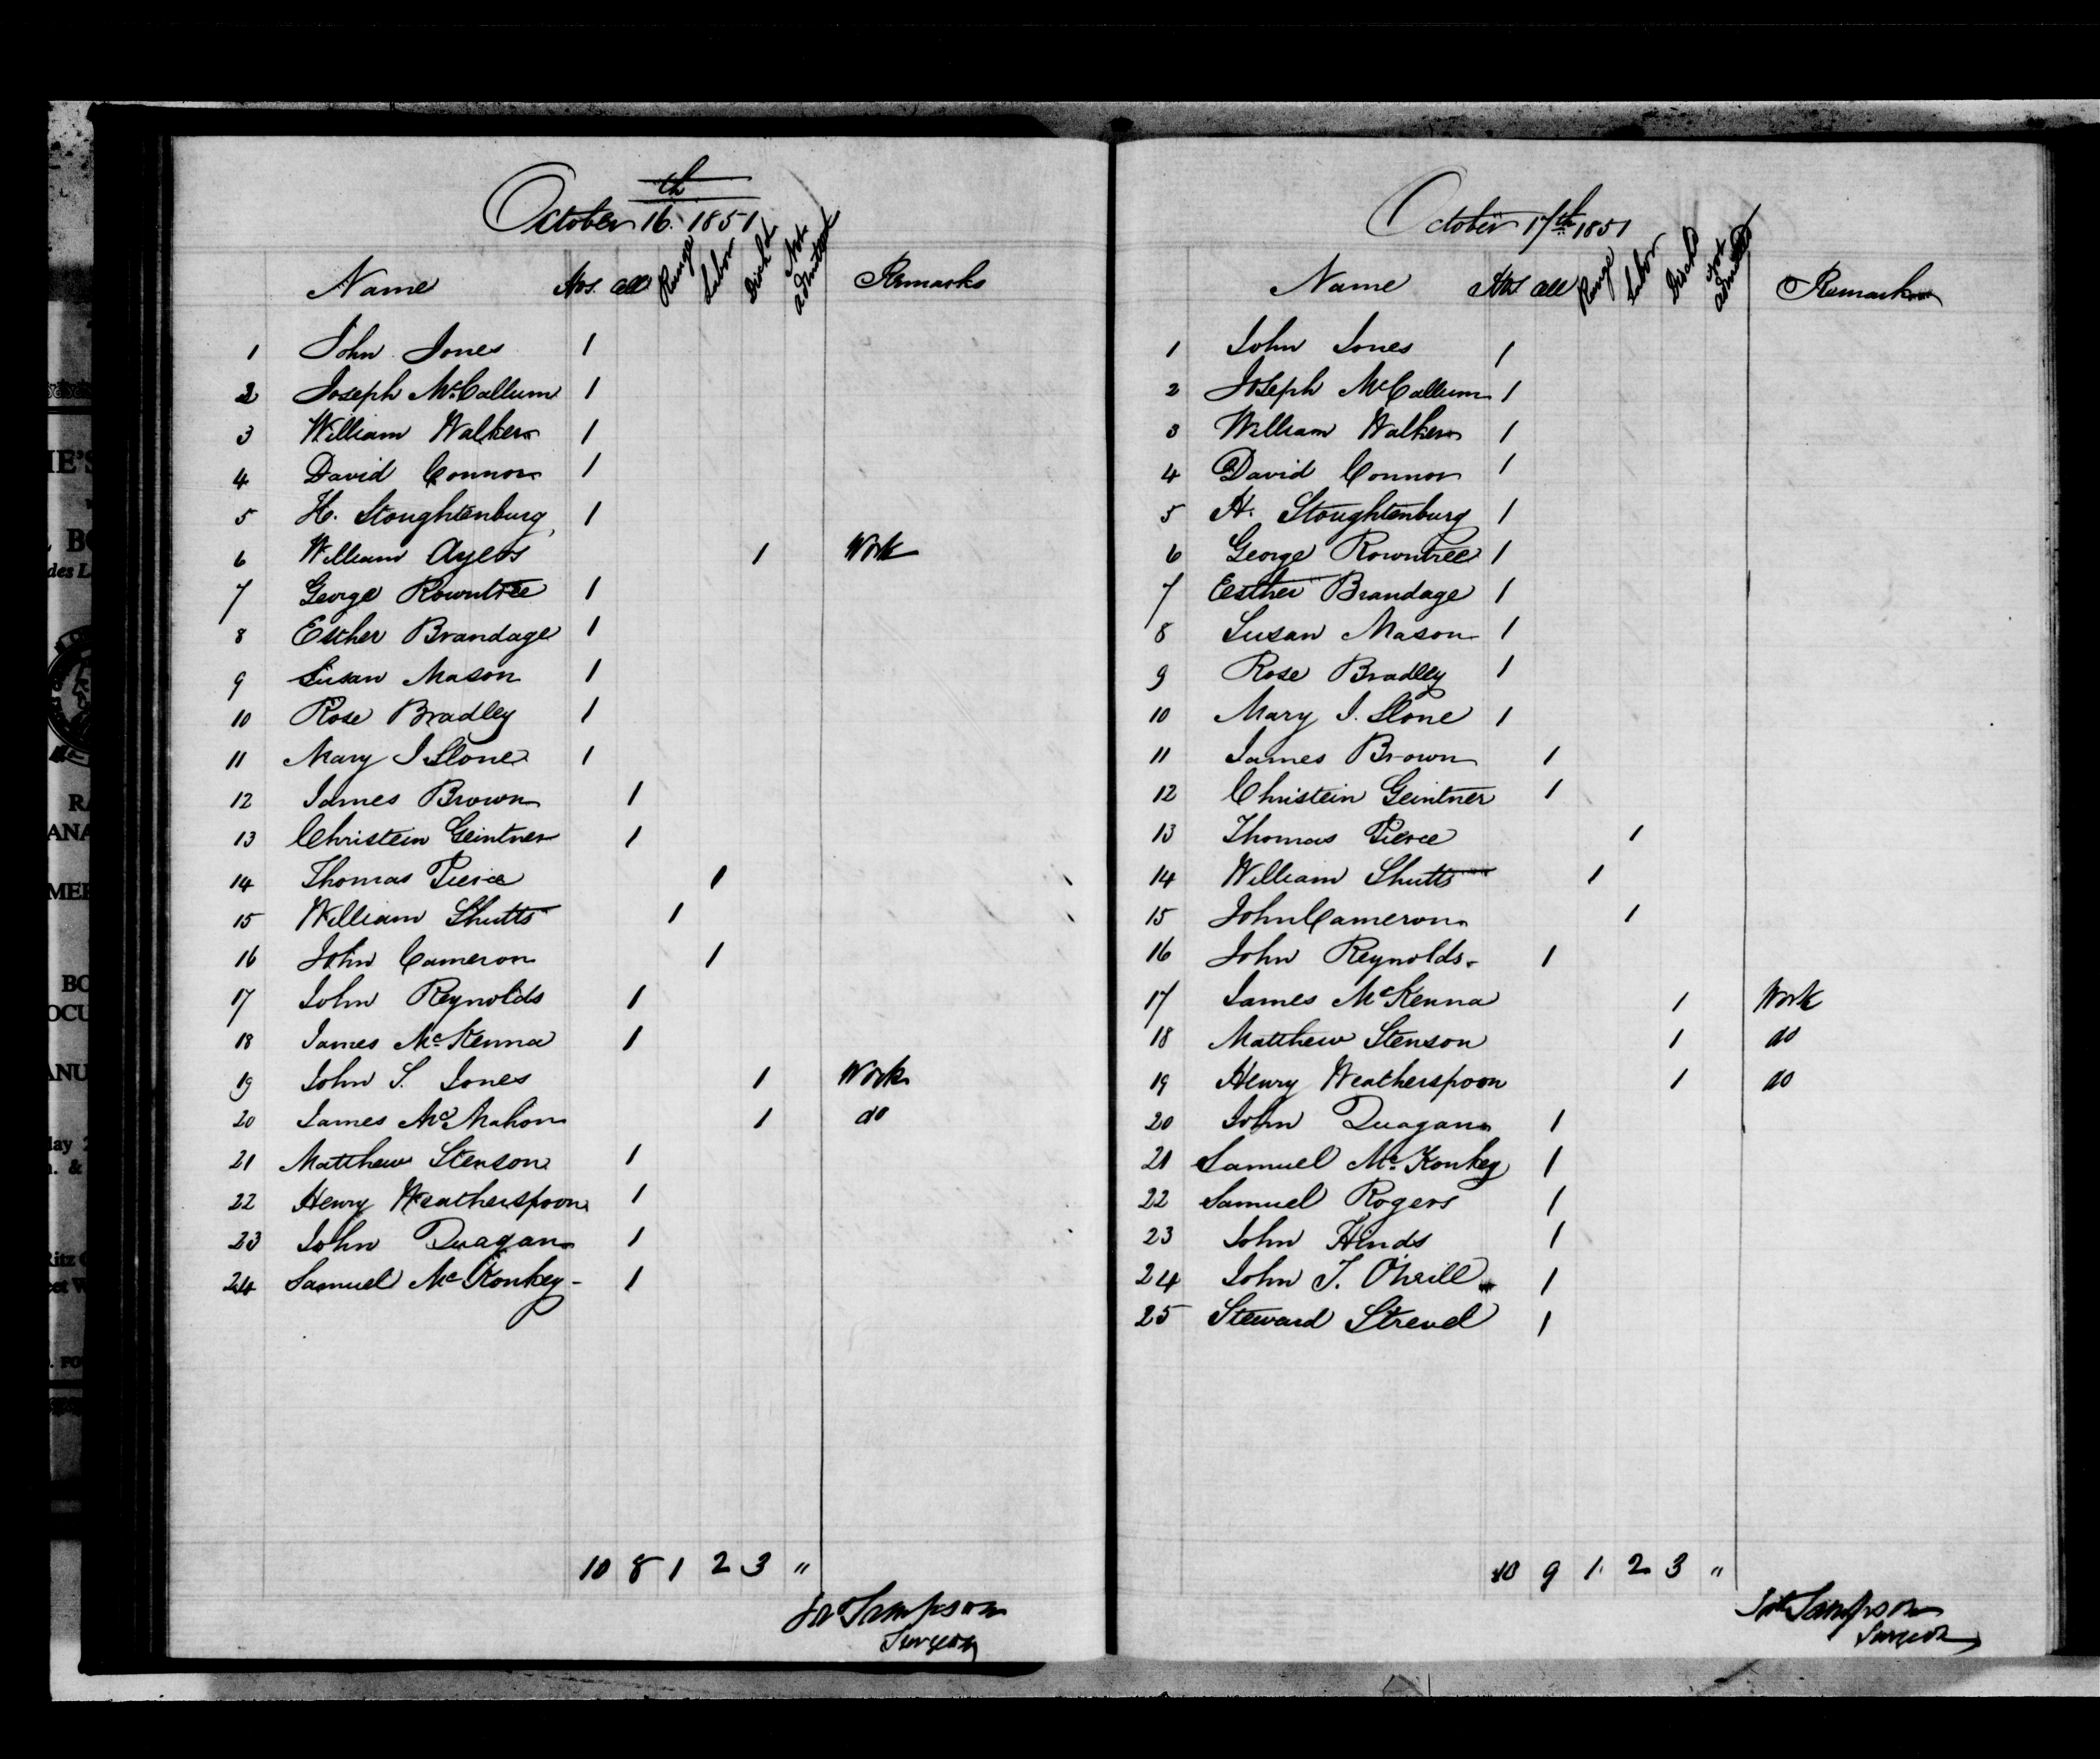 October 16th 1851
Name Hos. Cell Range Labor Disch'd Not admitted Remarks
1 John Jones 1
2 Joseph McCallum 1
3 William Walker 1
4 David Connor 1
5 H. Stoughtenburg 1
6 William Ayers 1 Work
7 George Rowntree 1
8 Esther Brandage 1
9 Susan Mason 1
10 Rose Bradley 1
11 Mary J Slone 1
12 James Brown 1
13 Christein Geintner 1
14 Thomas Pierce 1
15 William Shutts 1
16 John Cameron 1
17 John Reynolds 1
18 James McKenna 1
19 John S. Jones 1 Work
20 James McMahon 1 do
21 Matthew Stenson 1
22 Henry Weatherspoon 1
23 John Duagan 1
24 Samuel McKonkey 1
10 8 1 2 3 "
Sampson
Surgeon
October 17th 1851
Name Hos Cell Range Labor Disch'd Not admitted Remarks
1 John Jones 1
2 Joseph McCallum 1
3 William Walker 1
4 David Connor 1
5 H. Stoughtenburg 1
6 George Rowntree 1
7 Esther Brandage 1
8 Susan Mason 1
9 Rose Bradley 1
10 Mary J. Slone 1
11 James Brown 1
12 Christein Geintner 1
13 Thomas Pierce 1
14 William Shutts 1
15 John Cameron 1
16 John Reynolds 1
17 James McKenna 1 Work
18 Matthew Stenson 1 do
19 Henry Weatherspoon 1 do
20 John Duagan 1
21 Samuel McKonkey 1
22 Samuel Rogers 1
23 John Hinds 1
24 John T. O'neill 1
25 Steward Strevel 1
10 9 1 2 3 "
Sampson
Surgeon